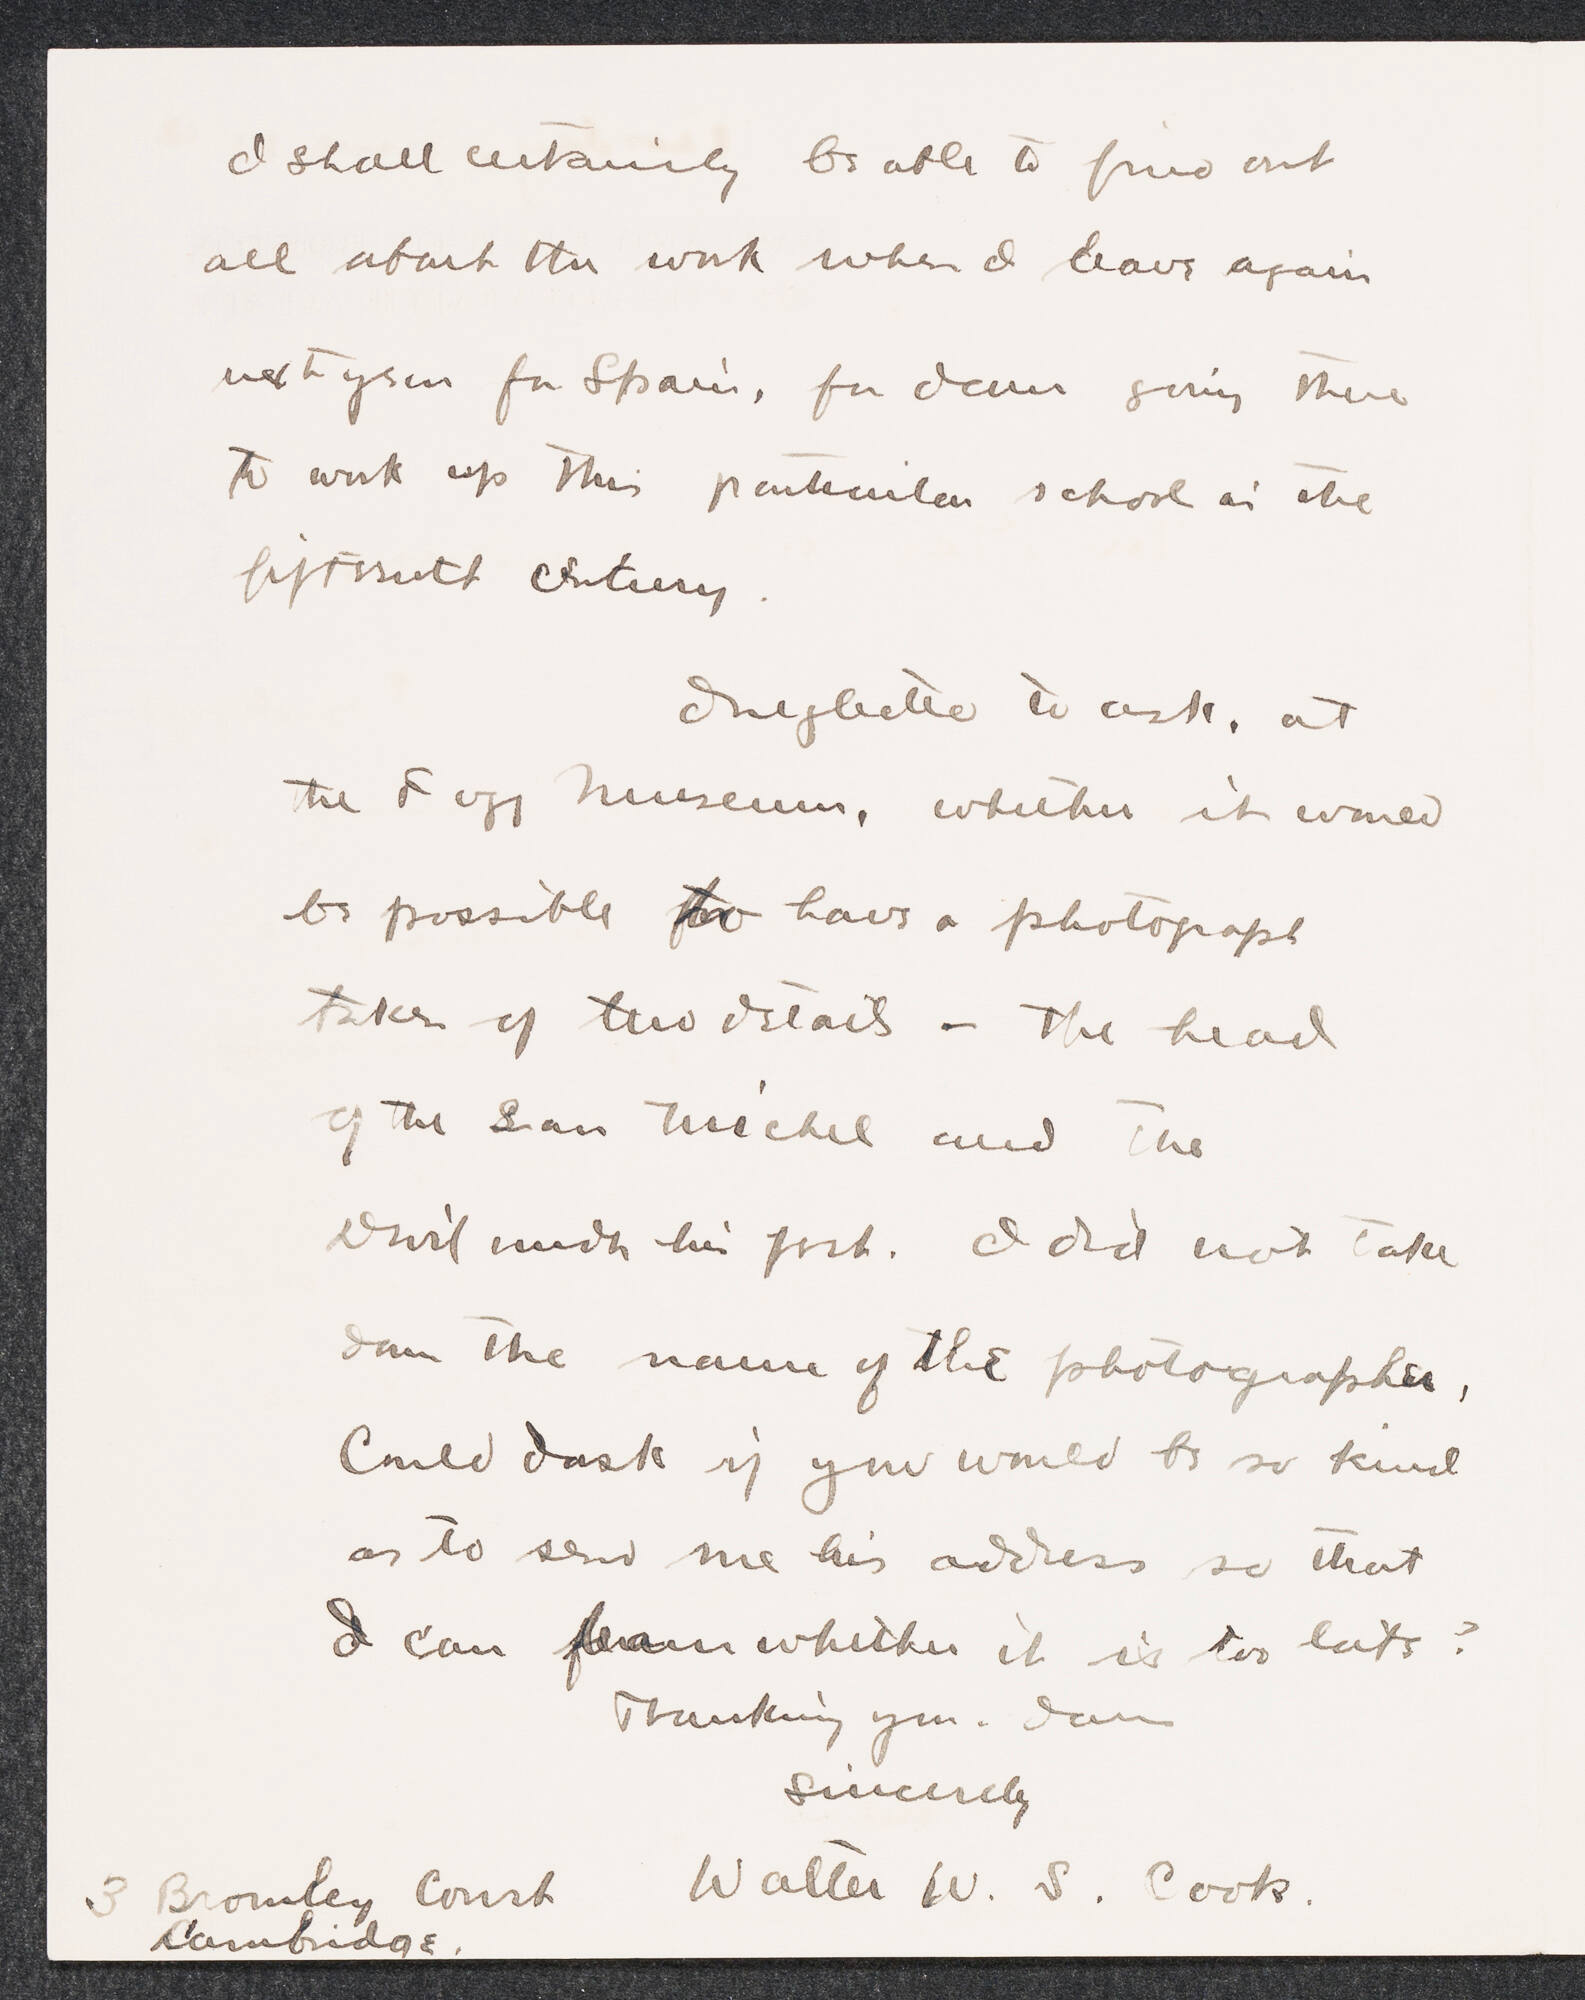 I shall certainly be able to find out
all about the work when I leave again
next year for Spain, for I am going there
to work up this particular school in the
fifteenth century.
I neglected to ask, at
the Fogg Museum, whether it would
be possible to have a photograph
taken of two details - the head
of the San Michel and the
Devil under his foot. I did not take
down the name of the photographer,
Could I ask if you would be so kind
as to send me his address so that
I can learn whether it is too late?
Thanking you. I am
Sincerely
Walter W. S. Cook.
3 Bromley Court
Cambridge.